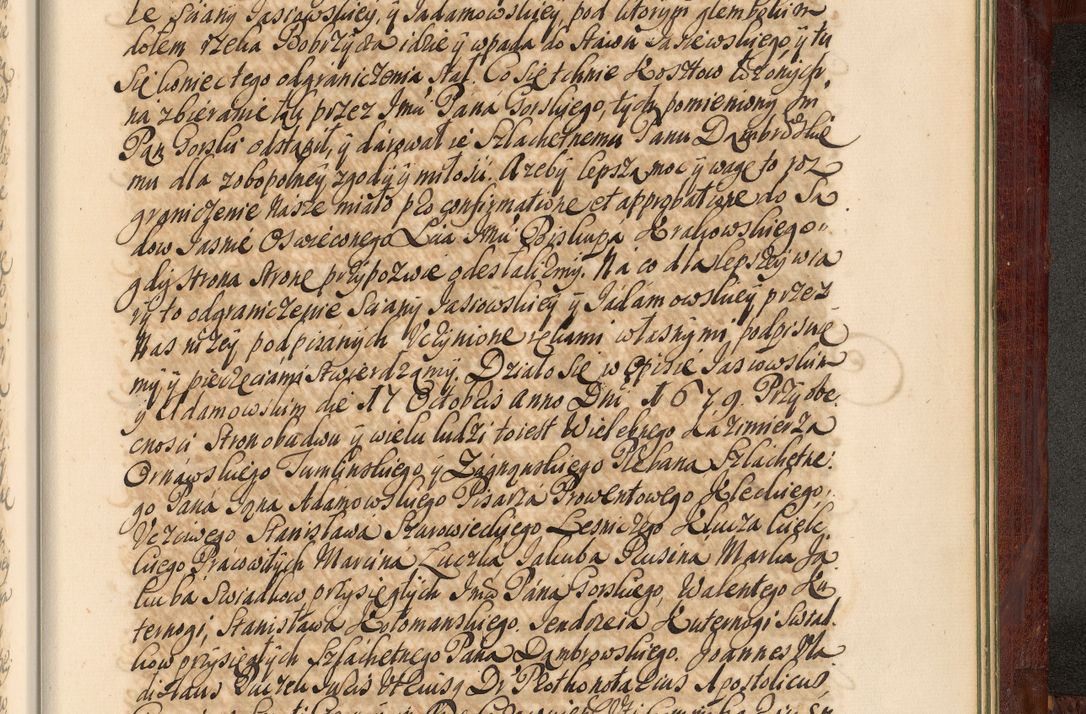 te Sciany Jasiowskiey, y Jadamowskiey, pod ktorym glembokim
dołem rzeka Bobrzyca idzie y wpada do Stawu Jasiewskiego y tu
się koniec tego odgraniczenia stał. Co się tchnie Kosztow łożonych
na zbieranie tey przez Jmci Pana Gorskiego, tych pomieniony Jm
Pan Gorski odstąpił, y darował ie Szlachetnemu Panu Dąmbrowskie
mu dla zobopolney zgody y miłości. A zeby lepszą moc y wagę to roz
graniczenie nasze miało pro confirmatione et approbatione do Są
dow Jasnie Oswieconego Xcia Jmci Biskupa Krakowskiego
gdy strona stronę przypozwie odesłalismy. Na co dla lepszey wia
ry to odgraniczenie Sciany Jasiowskiey y Jadamowskiey przez
Nas nizey podpisanych Uczynione rękami własnymi podpisuie
my y pieczęciami stwierdzamy. Działo się w Opisie Jasiowskim
y Adamowskim die 17 Octobris Anno Dni 1679. Przy obe
cnosci Stron obudwu y wielu ludzi to iest Wielebnego Kazimierza
Ornawskiego Tumlinskiego, y Zagnanskiego Plebana Szlachetne:
go Pana Jana Adamowskiego Pisarza Prowentowego Kleckiego,
Uczciwego Stanisława Szarowieckiego Lesniczego Klucza
kiego Pracowitych Marcina Zuczka Jakuba Plusina Marka Ja
kuba Swiadkow przysięgłych Jmci Pana Gorskiego, Walentego Ku
ternogi, Stanisława Kołomanskiego. Jendrzeia Kuternogi Swiad
kow przysięgłych Szlachetnego Pana Dąmbrowskiego. Joannes Vla
dislaus Juris Utriusq Dr Prothonotarius Apostolicus